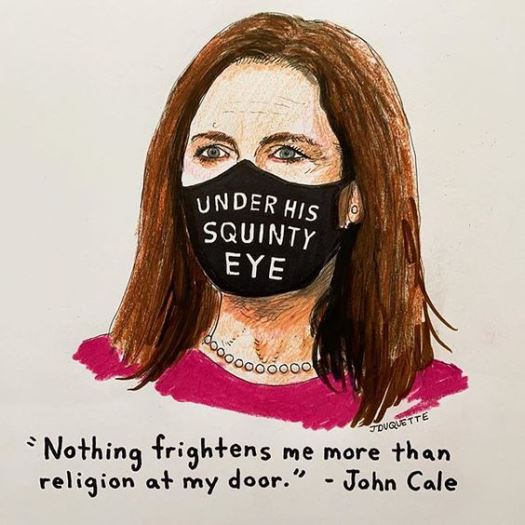 UNDER HIS
SQUINTY
EYE
JDUQUETTE
"Nothing frightens me more than
religion at my door." - John Cale